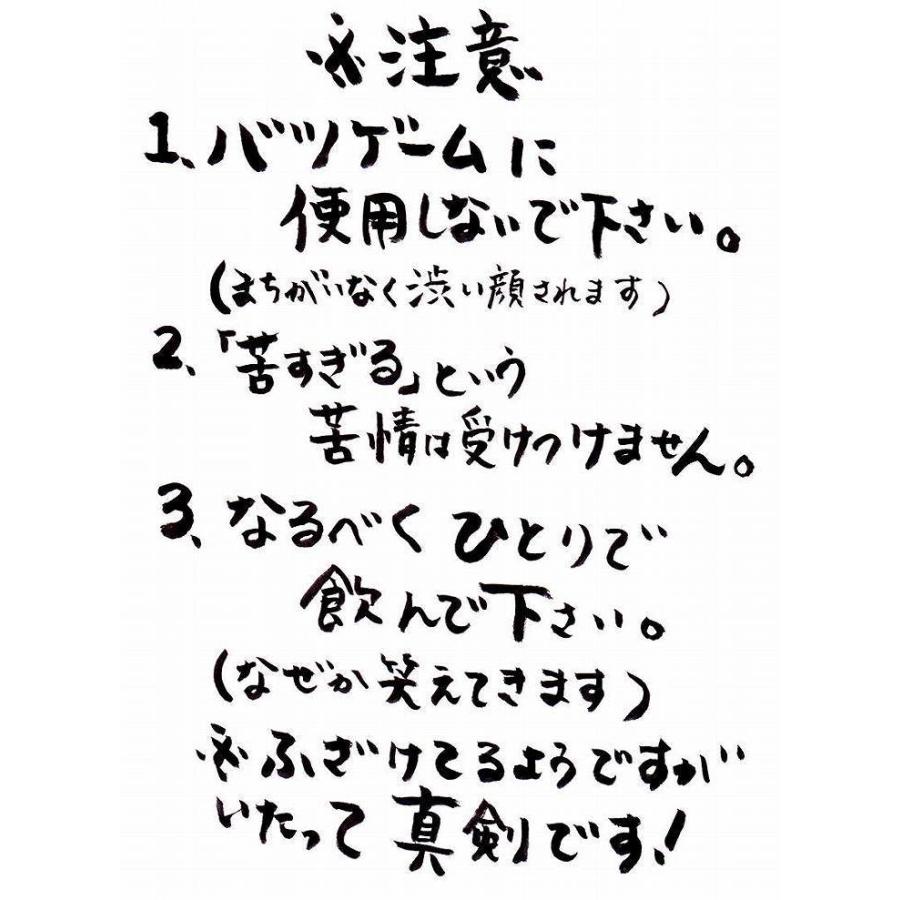 ※注意
1、バツゲームに
使用しないで下さい。
(まちがいなく渋い顔されます)
2、「苦すぎる」という
苦情は受けつけません。
3、なるべくひとりで
飲んで下さい。
(なぜか笑えてきます)
※ふざけてるようですが
いたって真剣です!